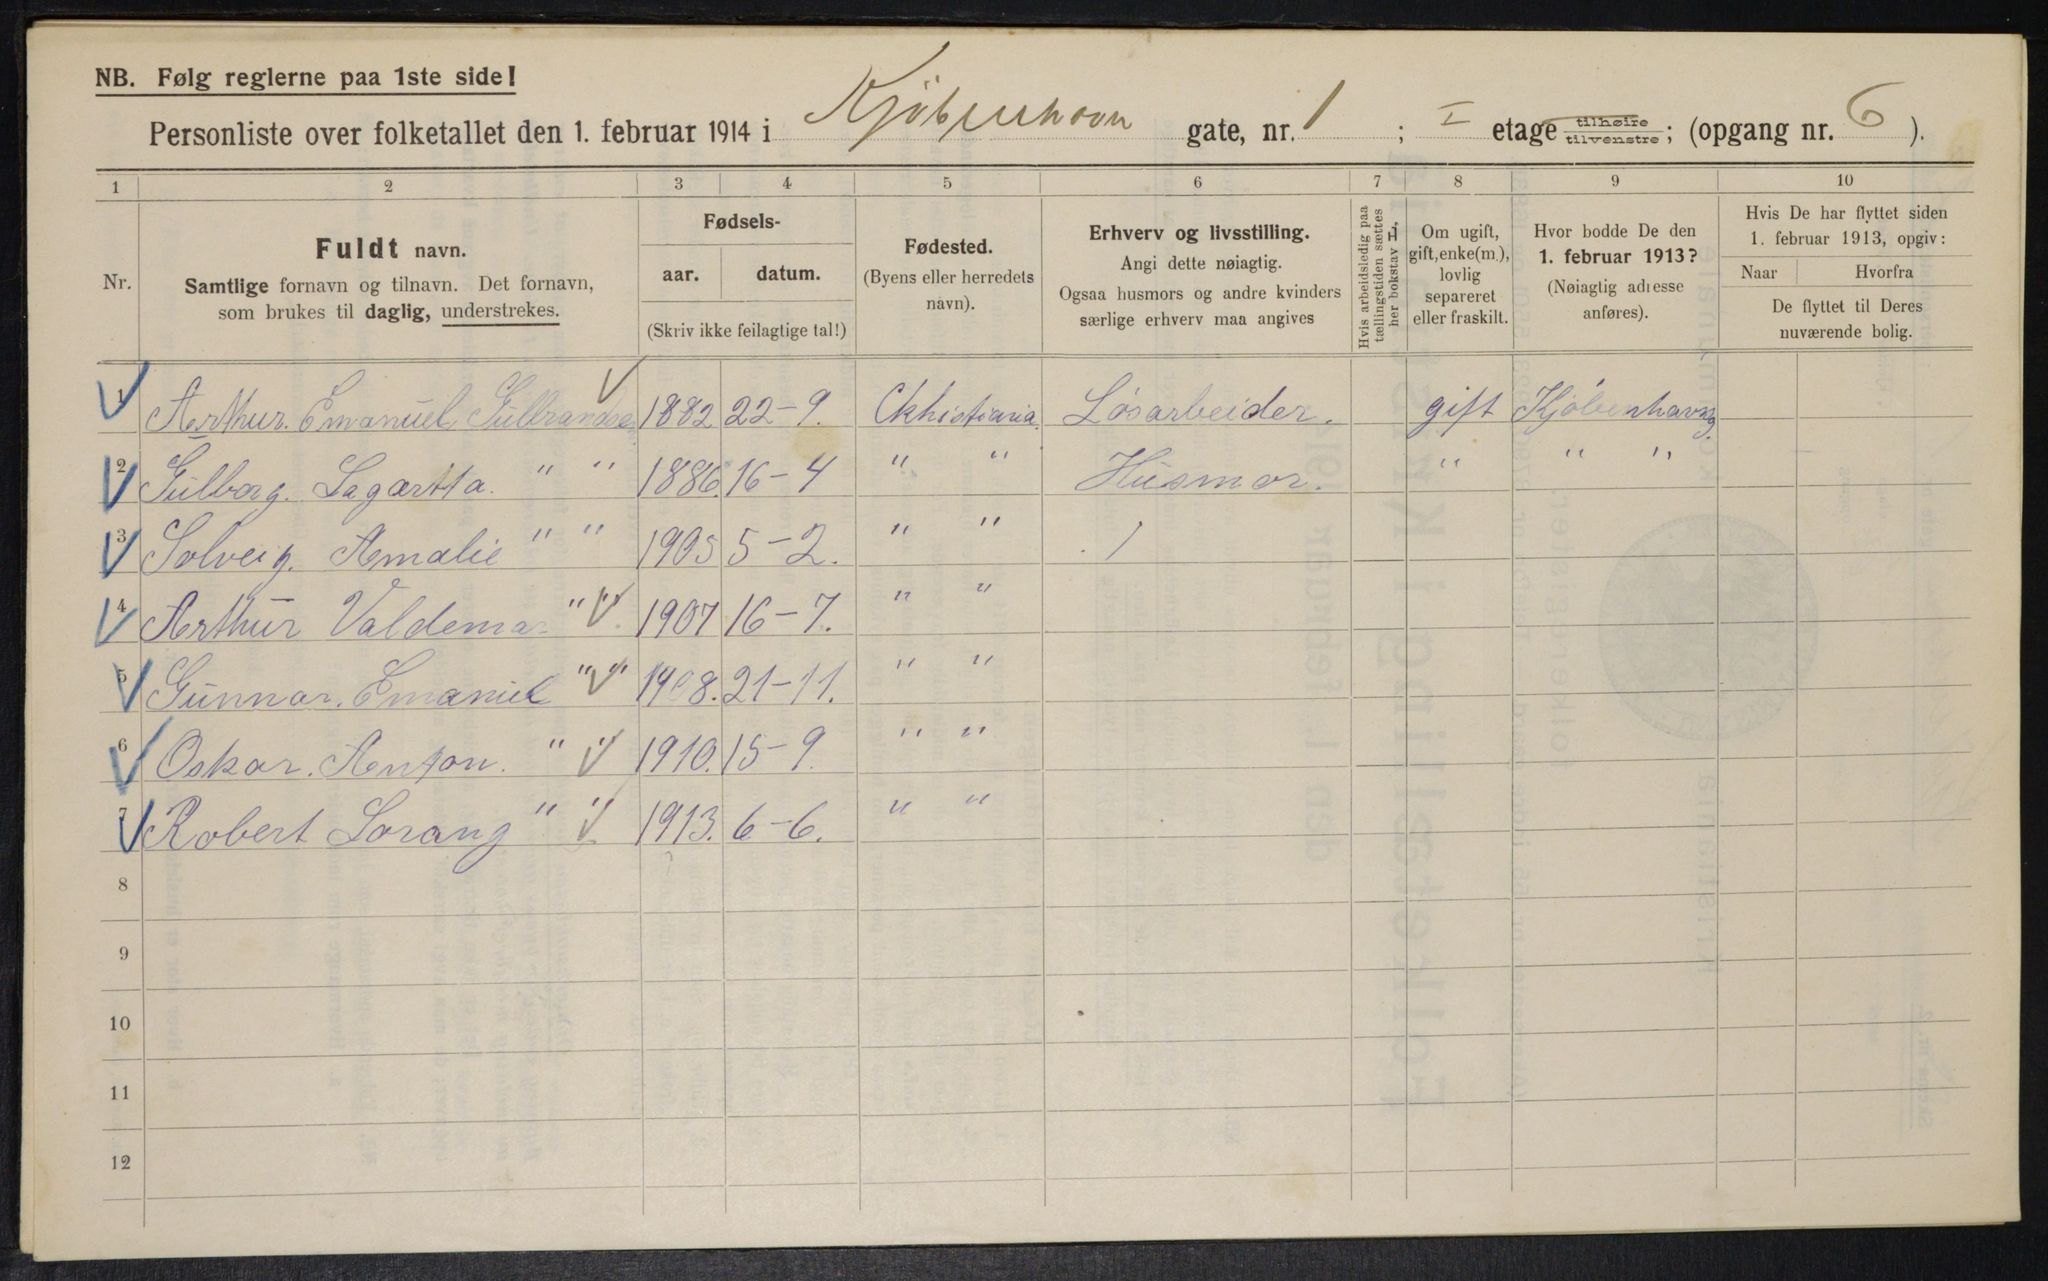 NB. Følg reglerne paa 1ste side!
Personliste over folketallet den 1. februar 1914 i Kjøbenhavn gate, nr. 1 ; I etage tilhøire tilvenstre; (opgang nr. 6 ).
1 2 3 4 5 6 7 8 9 10
Nr.
Fuldt navn.
Samtlige fornavn og tilnavn. Det fornavn,
som brukes til daglig, understrekes.
Fødsels-
aar. datum.
(Skriv ikke feilagtige tal!)
Fødested.
(Byens eller herredets
navn).
Erhverv og livsstilling.
Angi dette nøiagtig.
Ogsaa husmors og andre kvinders
særlige erhverv maa angives
Hvis arbeidsledig paa
tællingstiden sættes
her bokstav L.
Om ugift,
gift, enke(m.),
lovlig
separeret
eller fraskilt.
Hvor bodde De den
1. februar 1913?
(Nøiagtig adresse
anføres).
Hvis De har flyttet siden
1. februar 1913, opgiv:
Naar Hvorfra
De flyttet til Deres
nuværende bolig.
1 Arthur. Emanuel. Gulbrandsen 1882 22-9. Ckhistiania. Løsarbeider. gift Kjøbenhavng.
2 Gulborg. Lagærtta. " " 1886. 16-4 " " Husmor. " " "
3 Solveig. Amalie " " 1905 5-2. " "
4 Arthur Valdemar " " 1907 16-7. " "
5 Gunnar. Emanuel " " 1908. 21-11. " "
6 Oskar. Anton. " " 1910. 15-9. " "
7 Robert Lorang " " 1913. 6-6. " "
8
9
10
11
12